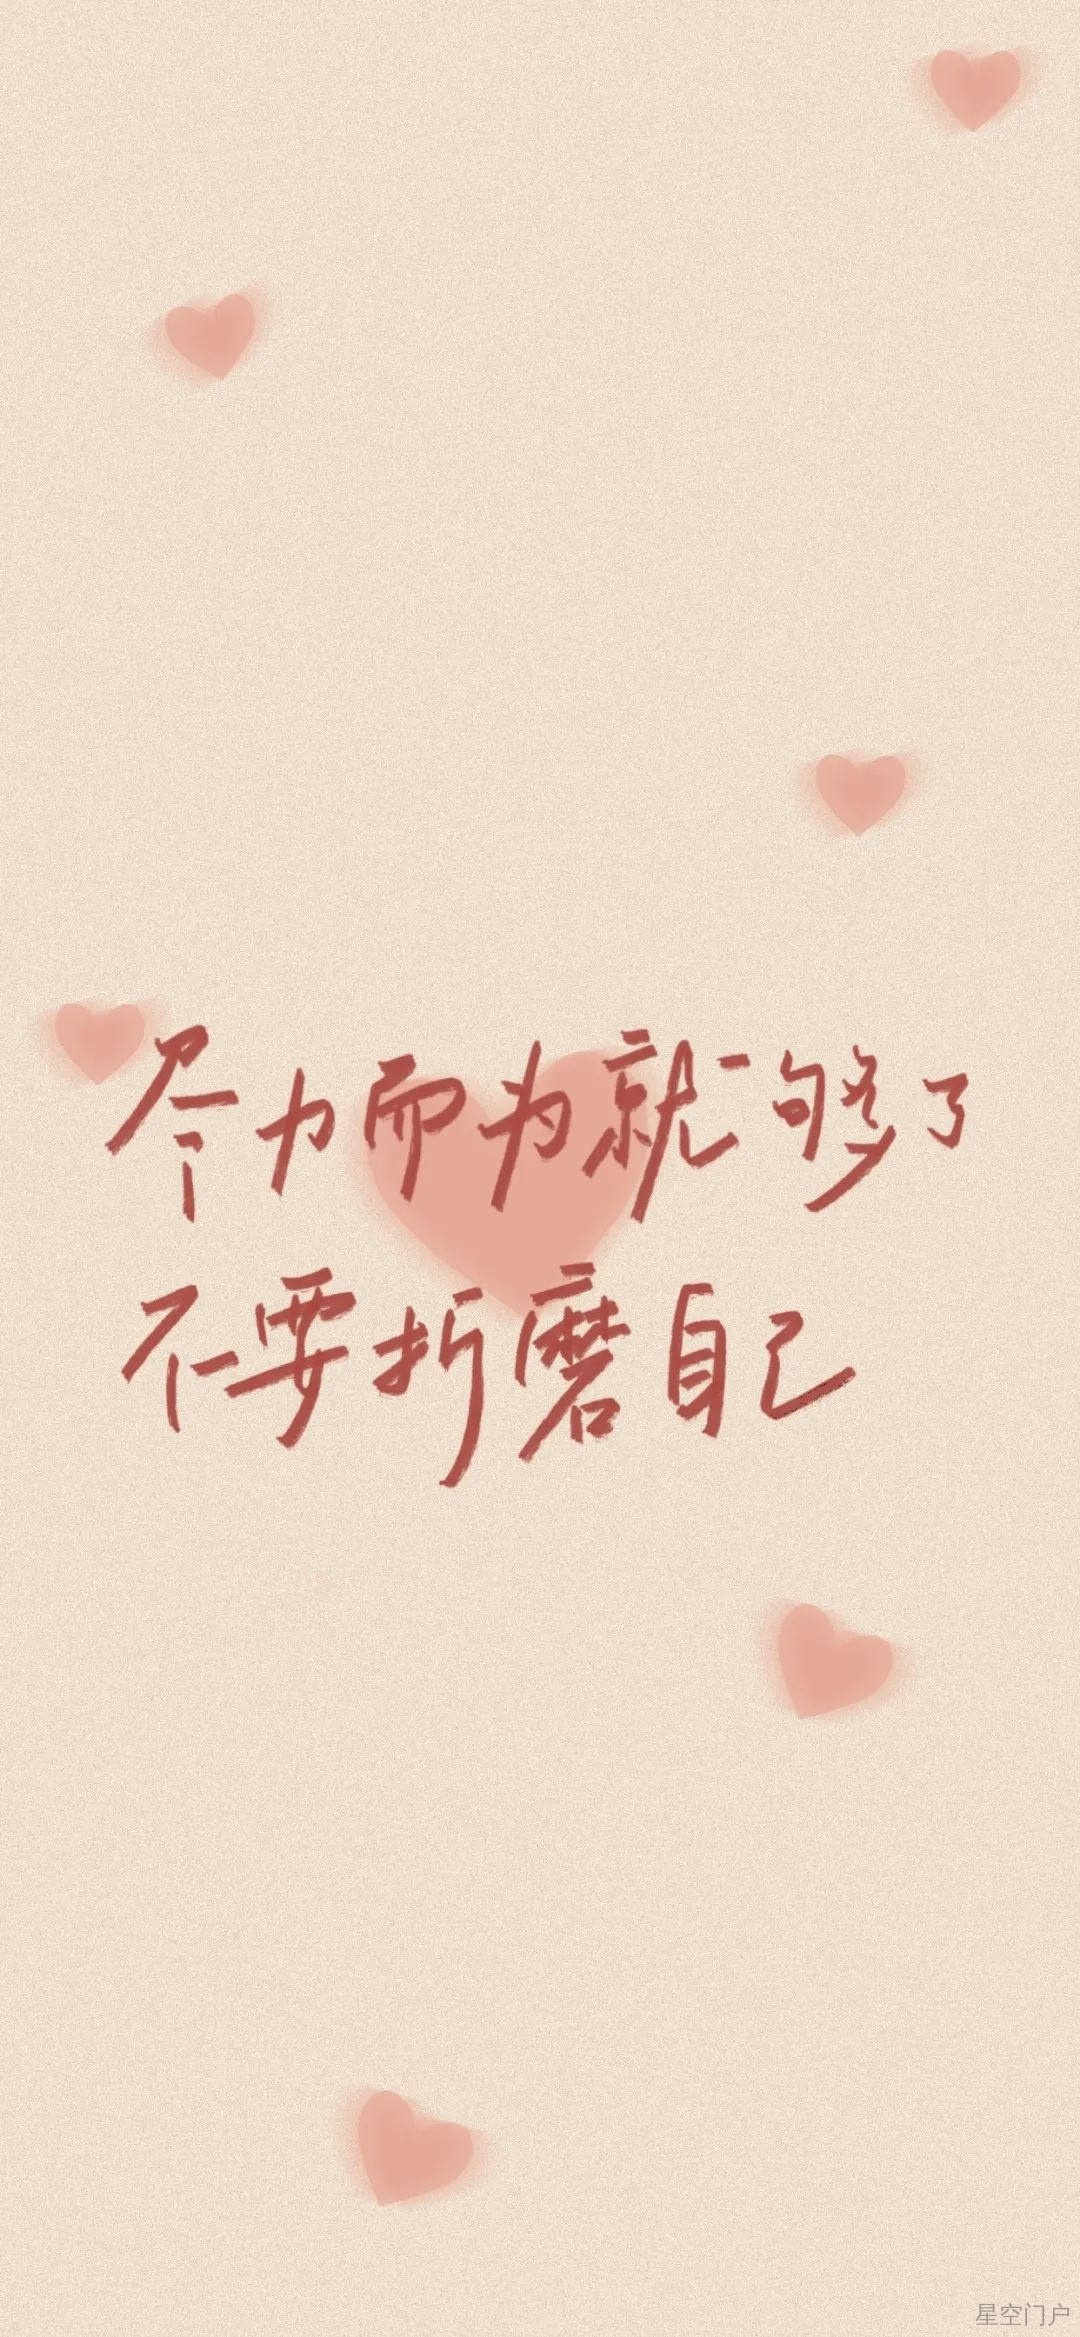 尽力而为就够了
不要折磨自己
星空门户